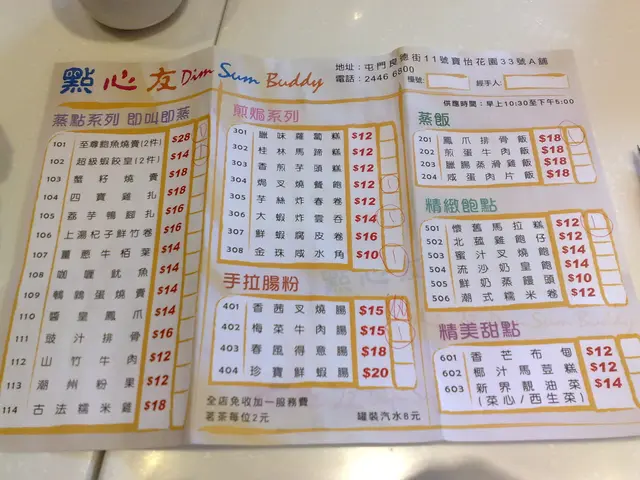 點心友 Dim Sum Buddy
地址：屯門良德街11號寶怡花園33號A舖
電話：2446 6800
檯號： 經手人：
供應時間：早上10:30至下午5:00
蒸點系列 即叫即蒸
101 至尊鮑魚燒賣(2件) $28
102 超級蝦餃皇(2件) $14
103 蟹籽燒賣 $18
104 四寶雞扎 $18
105 荔芋鴨腳扎 $16
106 上湯杞子鮮竹卷 $16
107 薑蔥牛栢葉 $14
108 咖喱魷魚 $14
109 鵪鶉蛋燒賣 $14
110 醬皇鳳爪 $14
111 豉汁排骨 $16
112 山竹牛肉 $12
113 潮州粉果 $12
114 古法糯米雞 $18
煎焗系列
301 臘味蘿蔔糕 $12
302 桂林馬蹄糕 $12
303 香煎芋頭糕 $12
304 焗叉燒餐飽 $12
305 芋絲炸春卷 $12
306 大蝦炸雲吞 $14
307 鮮蝦腐皮卷 $16
308 金珠咸水角 $10
手拉腸粉
401 香茜叉燒腸 $15
402 梅菜牛肉腸 $15
403 春風得意腸 $18
404 珍寶鮮蝦腸 $20
全店免收加一服務費
茗茶每位2元 罐裝汽水8元
蒸飯
201 鳳爪排骨飯 $18
202 煎蛋牛肉飯 $18
203 臘腸蒸滑雞飯 $18
204 咸蛋肉片飯 $18
精緻飽點
501 懷舊馬拉糕 $12
502 北菇雞飽仔 $12
503 蜜汁叉燒飽 $12
504 流沙奶皇飽 $14
505 鮮奶蒸饅頭 $10
506 潮式糯米卷 $12
精美甜點
601 香芒布甸 $12
602 椰汁馬荳糕 $12
603 新界靚油菜 $14
(菜心/西生菜)